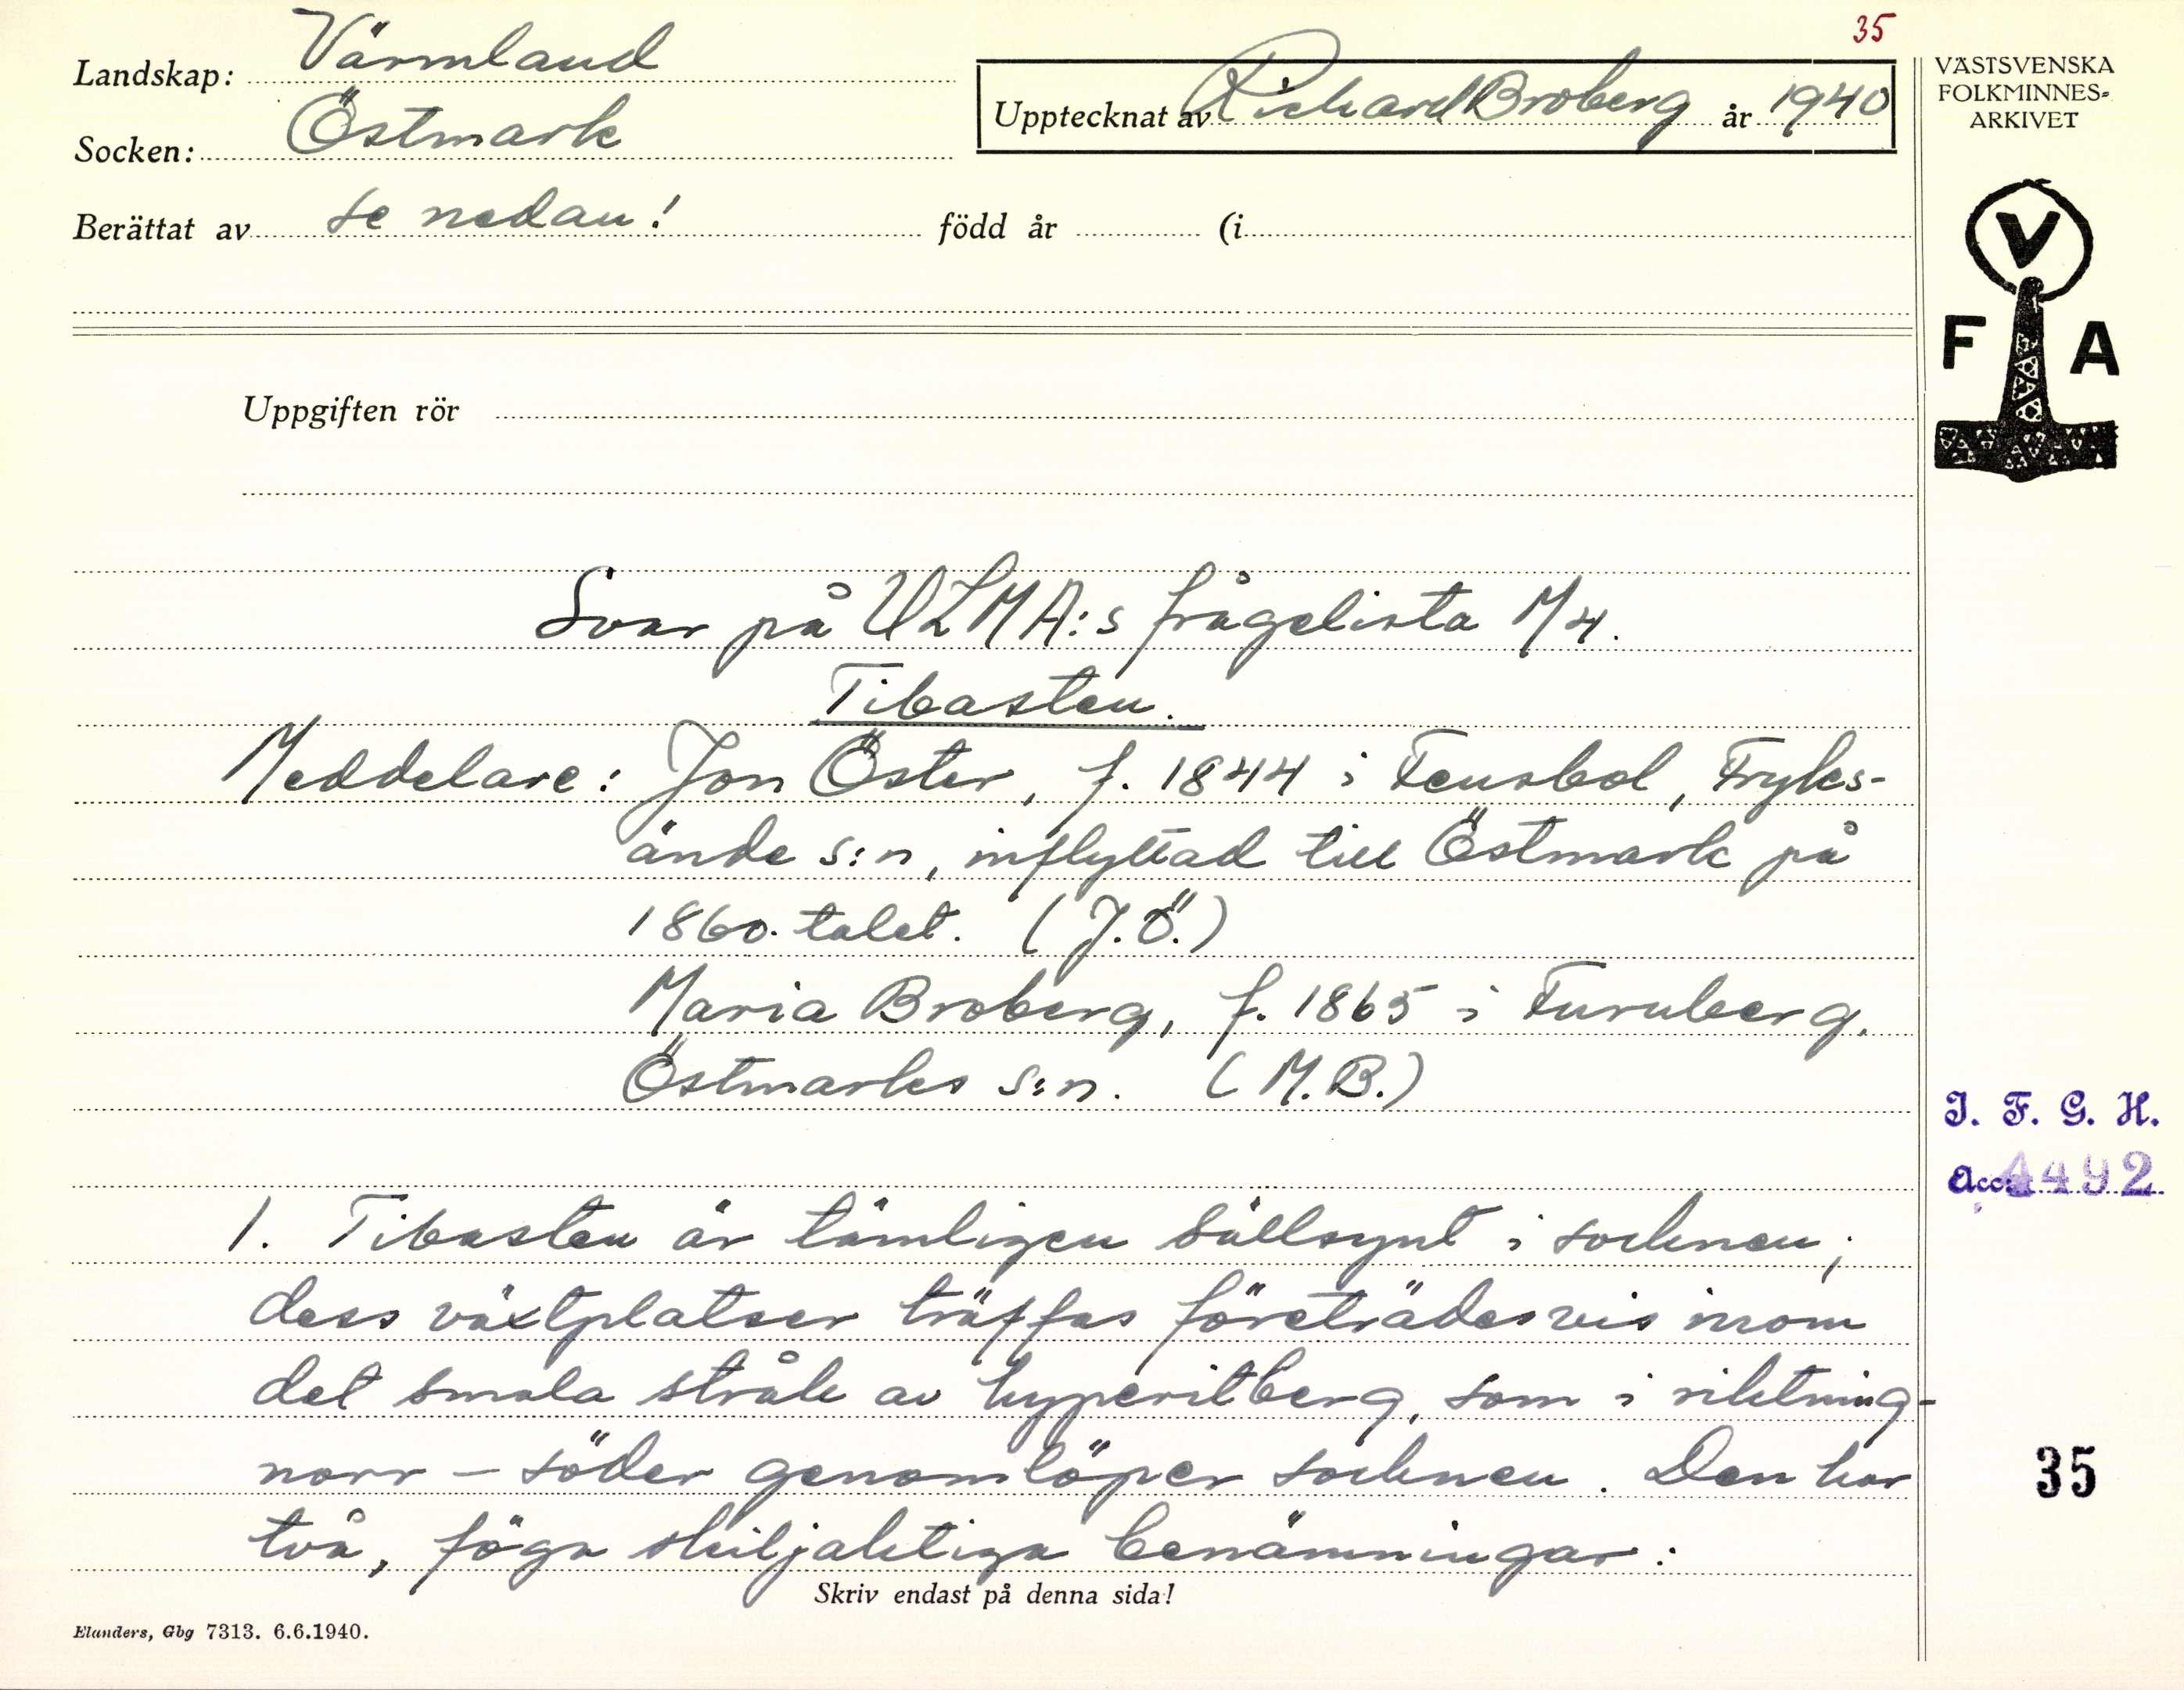 35
Landskap: Värmland
Upptecknat av Richard Broberg år 1940
Socken: Östmark
Berättat av se nedan! född år (i
VÄSTSVENSKA
FOLKMINNES-
ARKIVET
V
F A
Uppgiften rör
Svar på ULMA:s frågelista M4.
Tibasten.
Meddelare: Jon Öster, f. 1844 i Fensbol, Fryks-
ände s:n, inflyttad till Östmark på
1860-talet. (J.Ö.)
Maria Broberg, f. 1865 i Furuberg,
Östmarks s:n. (M.B.)
I. F. G. H.
Acc. 4492
1. Tibasten är tämligen sällsynt i socknen;
dess växtplatser träffas företrädesvis inom
det smala stråk av hyperitberg, som i riktning-
norr – söder genomlöper socknen. Den har
två, föga skiljaktiga benämningar:
35
Skriv endast på denna sida!
Elanders, Gbg 7313. 6.6.1940.